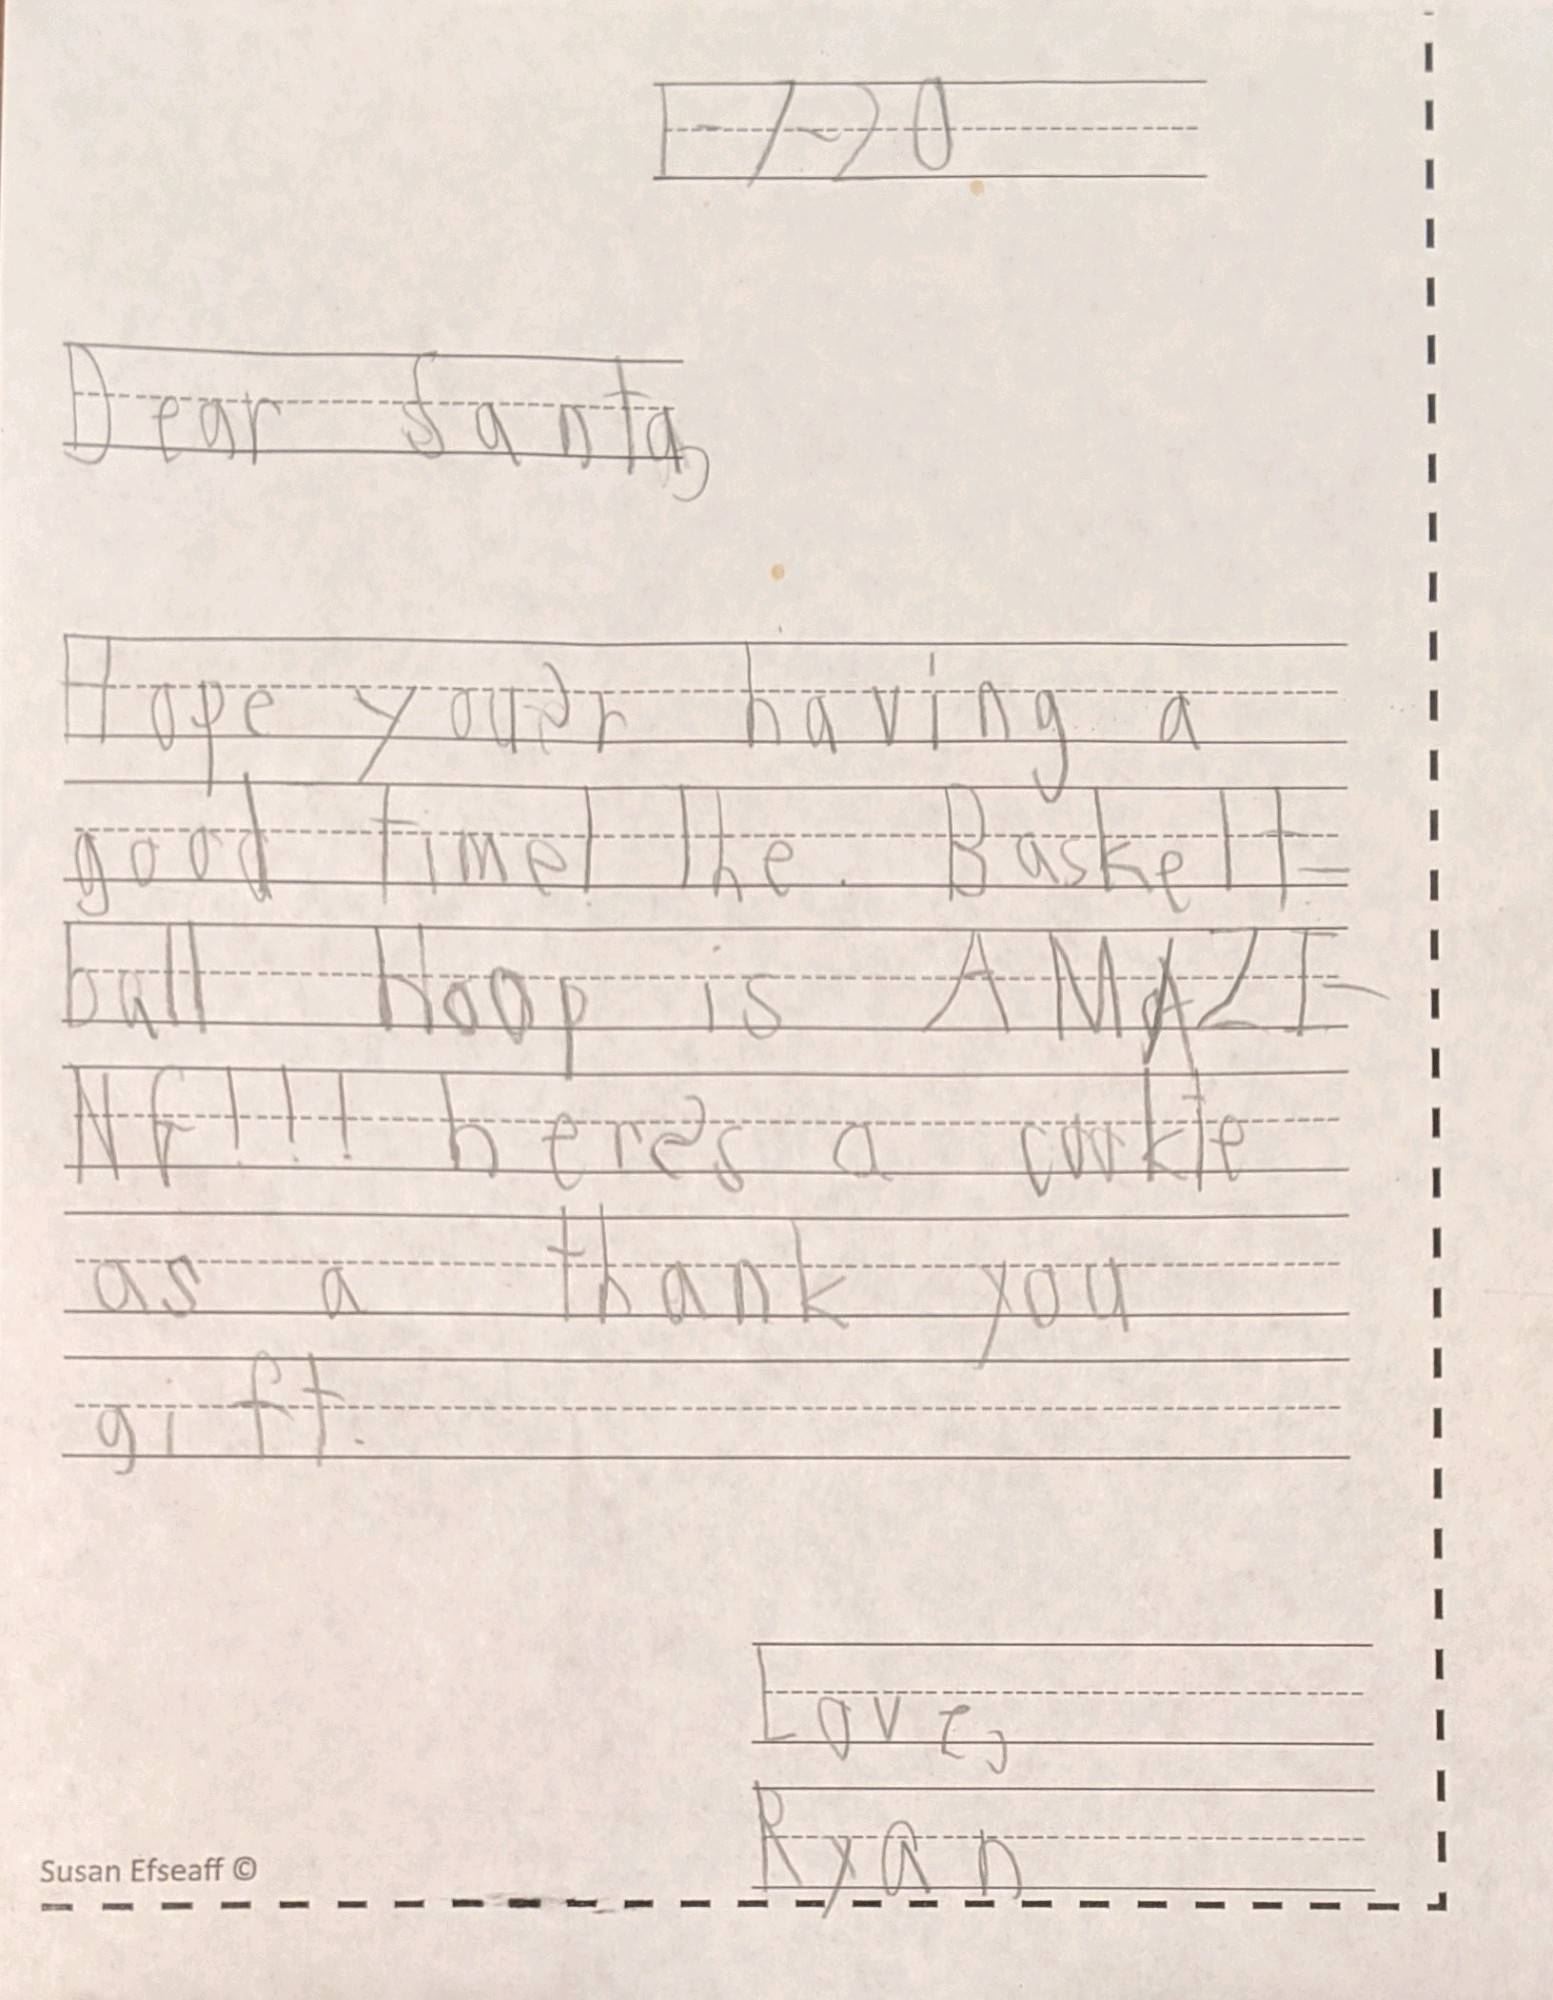 1-7-20
Dear Santa,
Hope you'r having a
good time! The. Baskett-
ball Hoop is AMAZI-
NG!!! here's a cookie
as a thank you
gift.
Love,
Ryan
Susan Efseaff ©